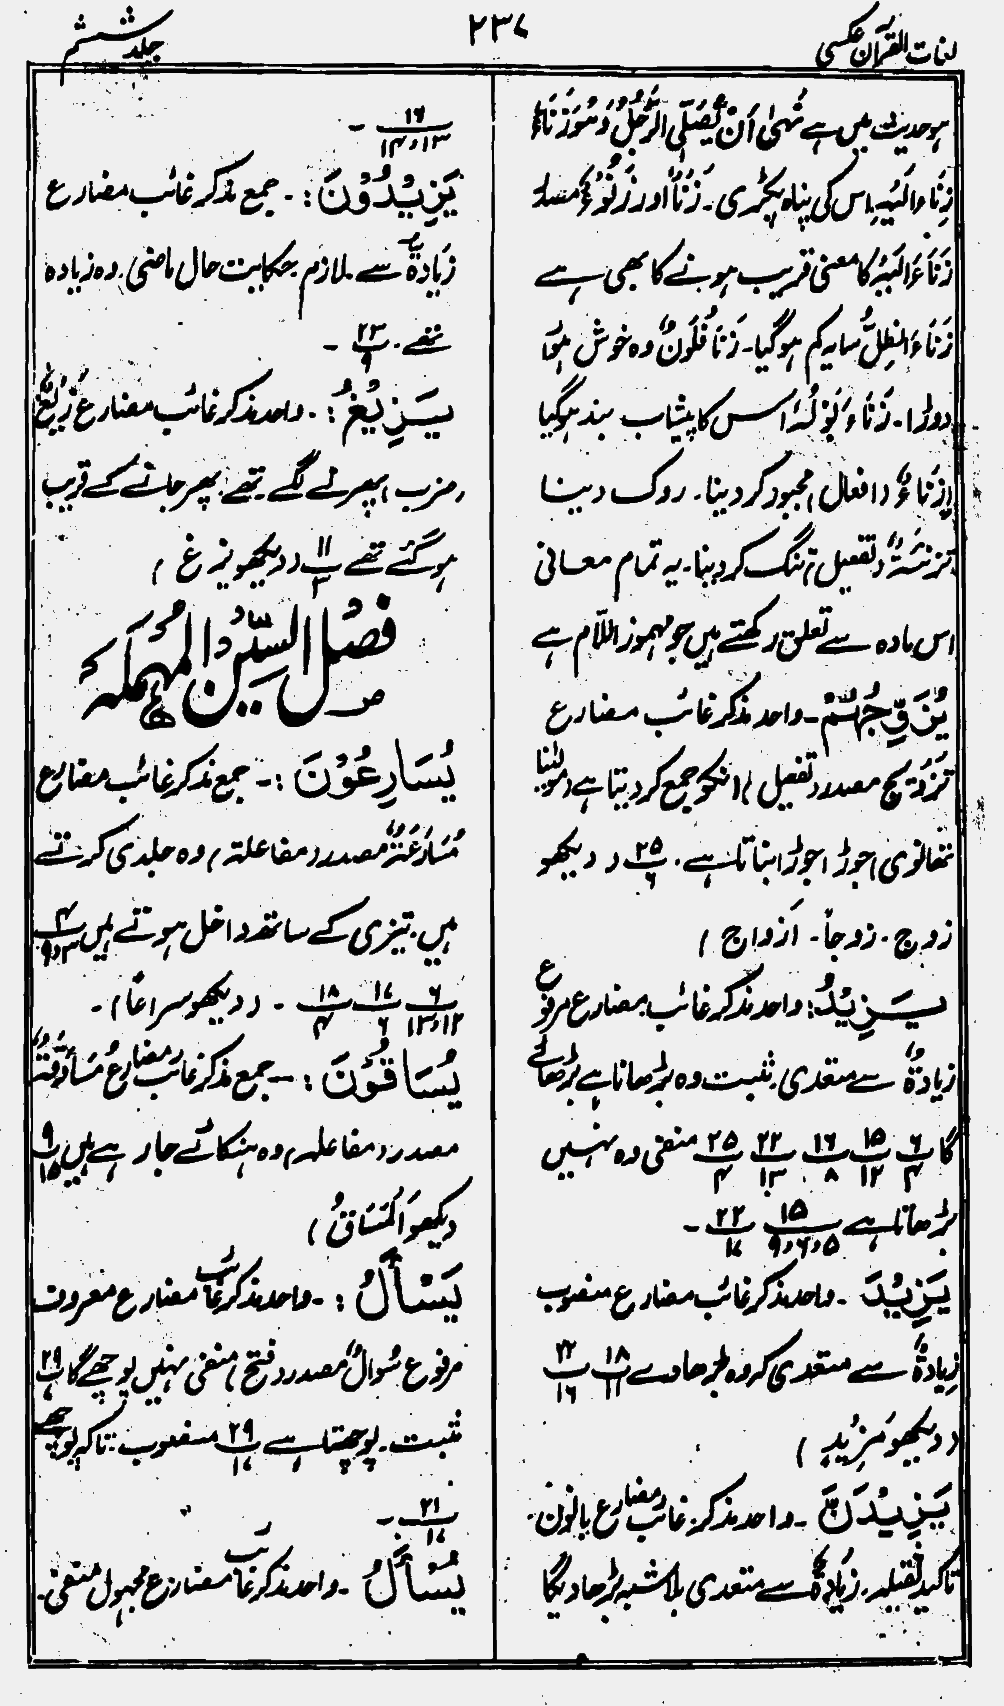 لغات القرآن عکسی
۲۳۷
جلد ششم
ہو حدیث میں ہے نُھِیَ اَنْ یُّصَلِّیَ الرَّجُلُ وَھُوَ زَنَاءٌ
زَنَاءَ اِلَیْہِ اس کی پناہ پکڑی۔ زَنَأٌ اور زُنُوْءٌ مصدر
زَنَاءَ اِلَیْہِ کا معنی قریب ہونے کا بھی ہے
زَنَاءَ الظِلُّ سایہ کم ہو گیا۔ زَنَاءَ فُلَانٌ وہ خوش ہوا
دوڑا۔ زَنَاءَ بَوْلُہٗ اس کا پیشاب بند ہو گیا
اِزْنَاءٌ (افعال) مجبور کر دینا۔ روک دینا
تَزْنِئَۃٌ (تفعیل) تنگ کر دینا۔ یہ تمام معانی
اس مادہ سے تعلق رکھتے ہیں جو مہموز اللّام ہے
یُزَوِّجُہُمْ۔ واحد مذکر غائب مضارع
تَزْوِیْجٌ مصدر (تفعیل) انکو جمع کر دیتا ہے (مولینا
تھانوی) جوڑا جوڑا بناتا ہے۔ ۲۵/۶ (دیکھو
زوج۔ زوجاً۔ اَزواج)
یَزِیْدُ: واحد مذکر غائب مضارع مرفوع
زیادۃٌ سے متعدی۔ مثبت وہ بڑھاتا ہے بڑھائے
گا ۶/۴ ۱۵/۱۲ ۱۶/۸ ۲۲/۱۳ ۲۵/۴ منفی وہ نہیں
بڑھاتا ہے ۱۵/۵،۶،۹ ۲۲/۱۷ ۔
یَزِیْدَ ۔ واحد مذکر غائب مضارع منصوب
زِیادۃٌ سے متعدی کہ وہ بڑھا دے ۱۸/۱۱ ۲۲/۱۶
(دیکھو مَزِیْدٍ)
یَزِیْدَنَّ ۔ واحد مذکر غائب مضارع بانون
تاکید ثقیلہ۔ زِیَادَۃٌ سے متعدی بلا شبہ بڑھا دیگا
۱۶/۱۳،۱۴ ۔
یَزِیْدُوْنَ: ۔ جمع مذکر غائب مضارع
زِیَادَۃٌ سے ۔ لازم بحکایت حال ماضی۔ وہ زیادہ
تھے۔ ۲۳/۹ ۔
یَزِیْغُ: ۔ واحد مذکر غائب مضارع زَیْغٌ
(ضرب) پھرنے لگے۔ تھے۔ پھر جانے کے قریب
ہو گئے تھے ۱۱/۳ (دیکھو زیغ)
فصْلُ السِّیْنِ الْمُہملَہ
یُسَارِعُوْنَ: ۔ جمع مذکر غائب مضارع
مُسَارَعَۃٌ مصدر (مفاعلۃ) وہ جلدی کرتے
ہیں۔ تیزی کے ساتھ داخل ہوتے ہیں ۴/۳،۹
۶/۱۲،۱۳ ۱۷/۶ ۱۸/۴ ۔ (دیکھو سراعاً)۔
یُسَاقُوْنَ: ۔ جمع مذکر غائب مضارع مُسَاوَقَۃٌ
مصدر (مفاعلہ) وہ ہنکائے جار ہے ہیں ۹/۱۵
(دیکھو اَلْمَسَاقُ)
یَسْأَلُ: ۔ واحد مذکر غائب مضارع معروف
مرفوع سُوالٌ مصدر (فتح) منفی نہیں پوچھے گا ۲۹/۷
مثبت۔ پوچھتا ہے ۲۹/۱۷ منصوب: تاکہ پوچھے
۲۱/۱۷ ۔
یُسْأَلُ ۔ واحد مذکر غائب مضارع مجہول منفی۔